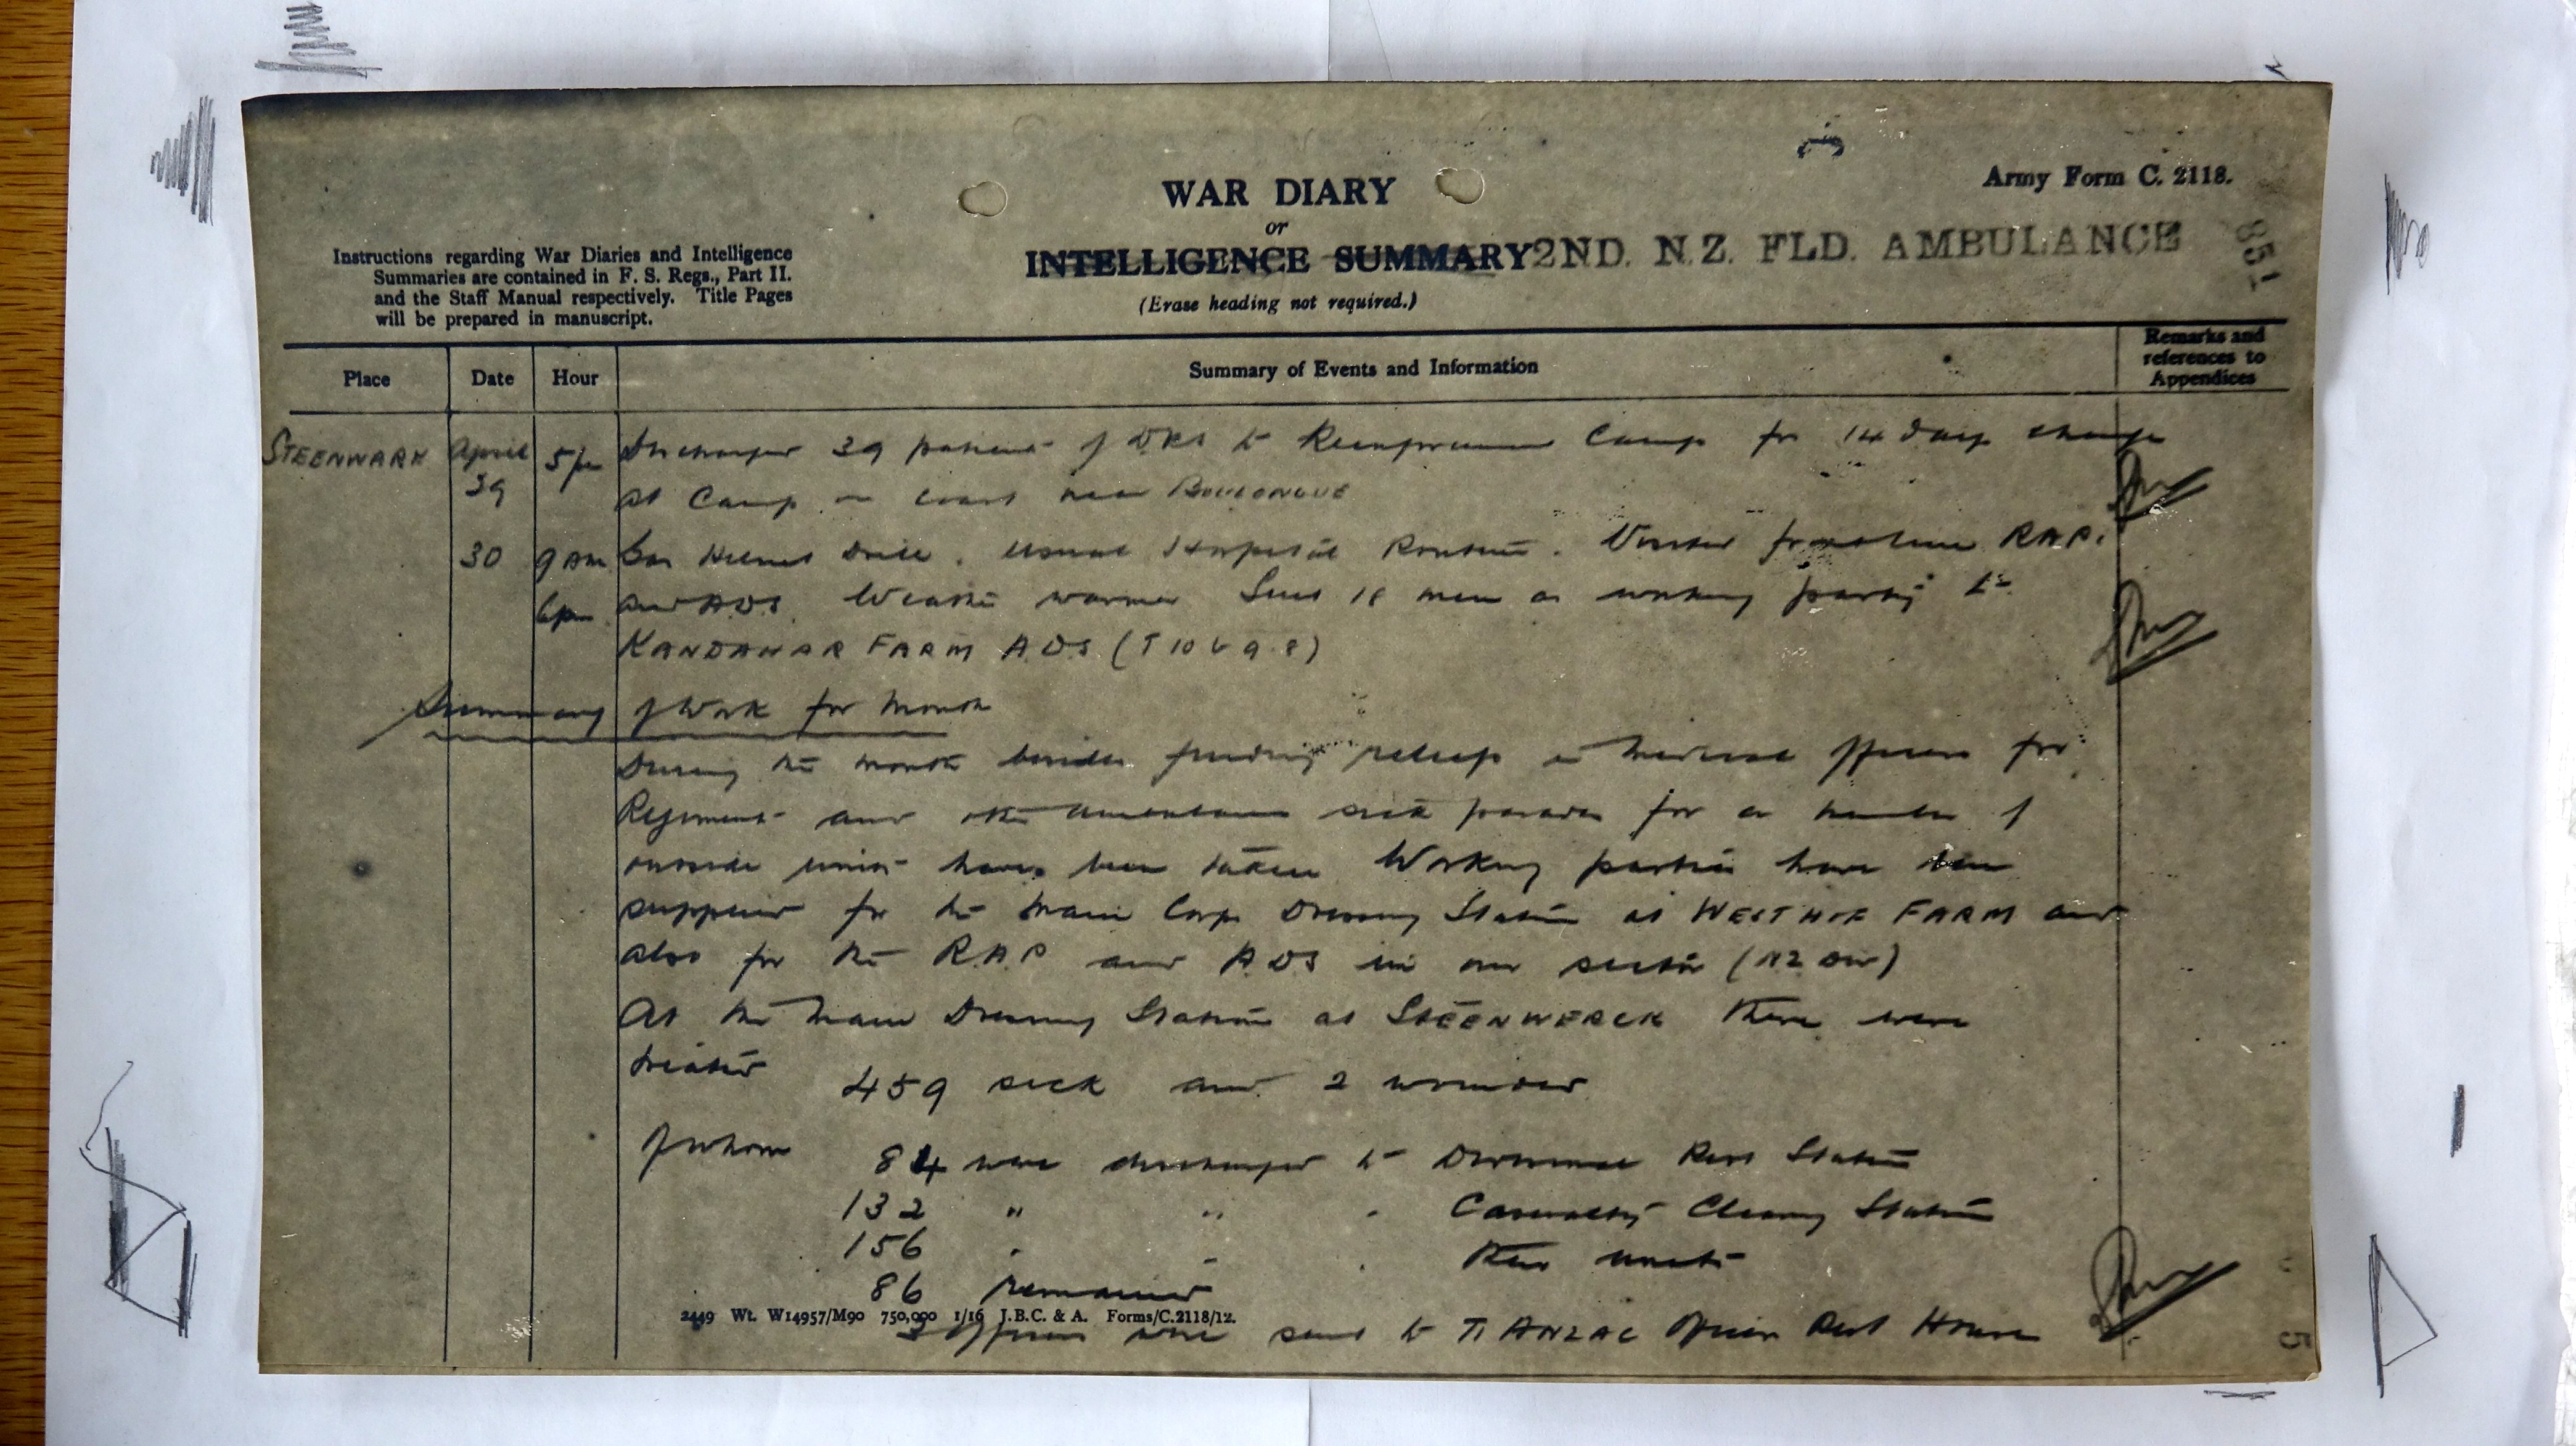 Army Form C. 2118.
WAR DIARY
or
INTELLIGENCE SUMMARY
2ND. N.Z. FLD. AMBULANCE
(Erase heading not required.)
851
Instructions regarding War Diaries and Intelligence
Summaries are contained in F. S. Regs., Part II.
and the Staff Manual respectively. Title Pages
will be prepared in manuscript.
Place Date Hour Summary of Events and Information Remarks and references to Appendices
STEENWARK April 29 5 pm Discharged 39 patients of DRS to Reinforcement Camp for 14 days change
at Camp on coast near BOULONGUE
30 9 am Gas Helmet Drill. Usual Hospital Routine. Visited RAP.
6 pm and ADS. Weather warmer Sent 18 men as working party to
KANDAHAR FARM ADS (T 10 b 9.8)
Summary of Work for Month
During the month besides finding reliefs in Medical Officers for
Regiments and other Ambulances sick parades for a number of
outside units have been taken Working parties have been
supplied for the Main Corps Dressing Station at WESTHOF FARM and
also for the R.A.P and ADS in our sector (NZ Div)
At the Main Dressing Station at STEENWERCK there were
treated 459 sick and 2 wounded
Of whom 84 were discharged to Divisional Rest Station
132 " " " Casualty Clearing Station
156 " " " their units
86 remained
2449 Wt. W14957/M90 750,000 1/16 J.B.C. & A. Forms/C.2118/12.
3 officers were sent to II ANZAC Officers Rest House